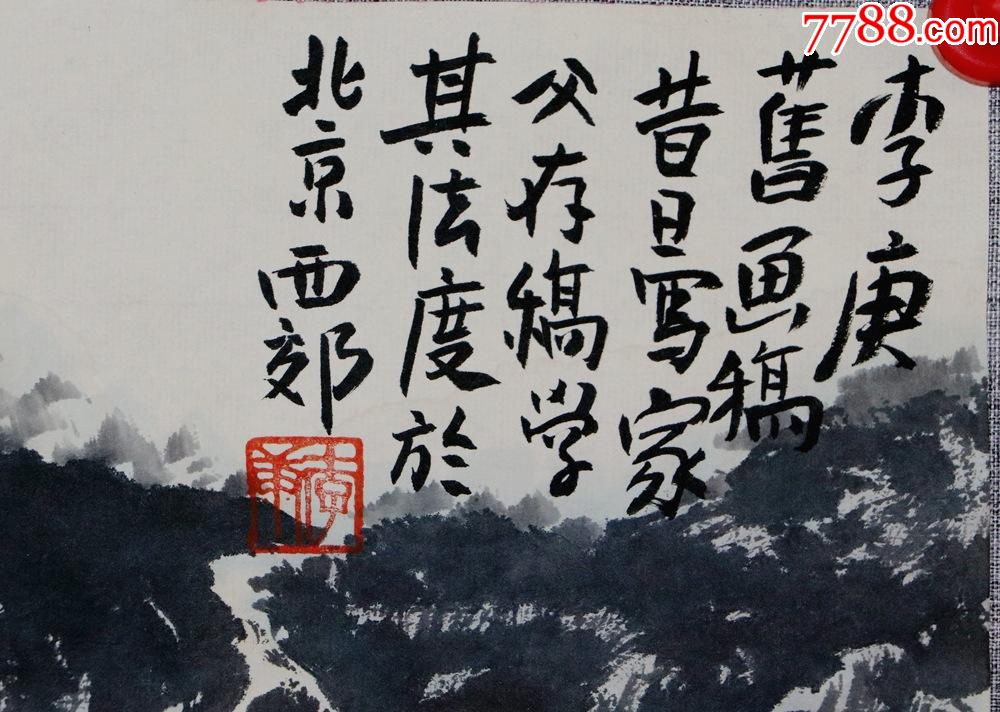 7788.com
李庚
舊画稿
昔日寫家
父存稿学
其法度於
北京西郊